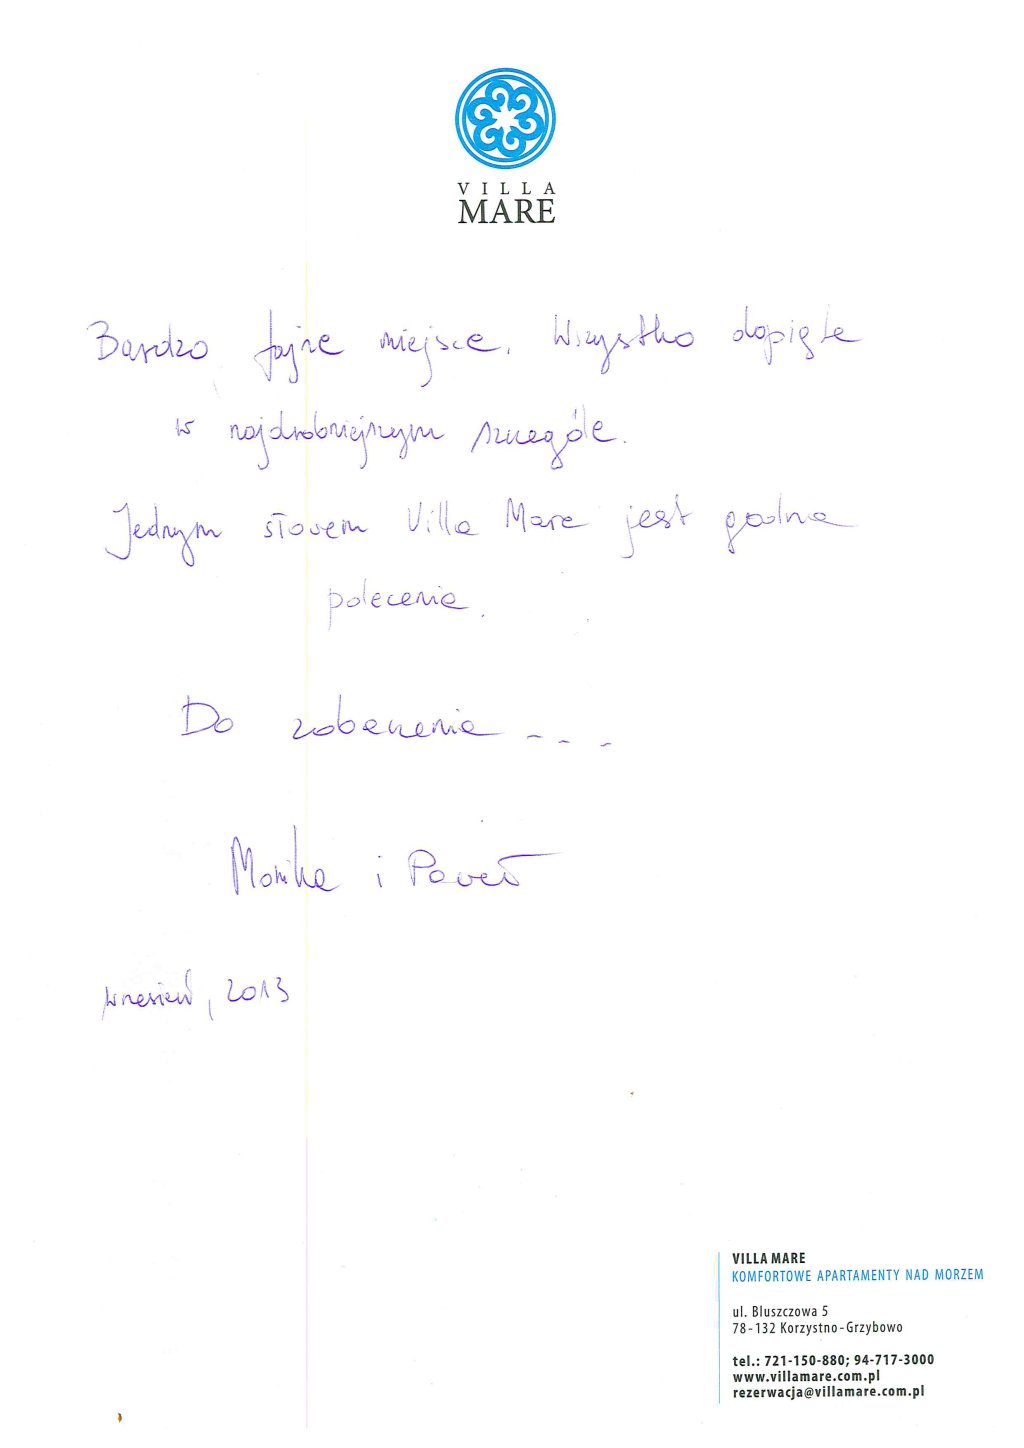 VILLA
MARE
Bardzo fajne miejsce. Wszystko dopięte
w najdrobniejszym szczególe.
Jednym słowem Villa Mare jest godna
polecenia.
Do zobaczenia ...
Monika i Paweł
wrzesień, 2013
VILLA MARE
KOMFORTOWE APARTAMENTY NAD MORZEM
ul. Bluszczowa 5
78-132 Korzystno-Grzybowo
tel.: 721-150-880; 94-717-3000
www.villamare.com.pl
rezerwacja@villamare.com.pl